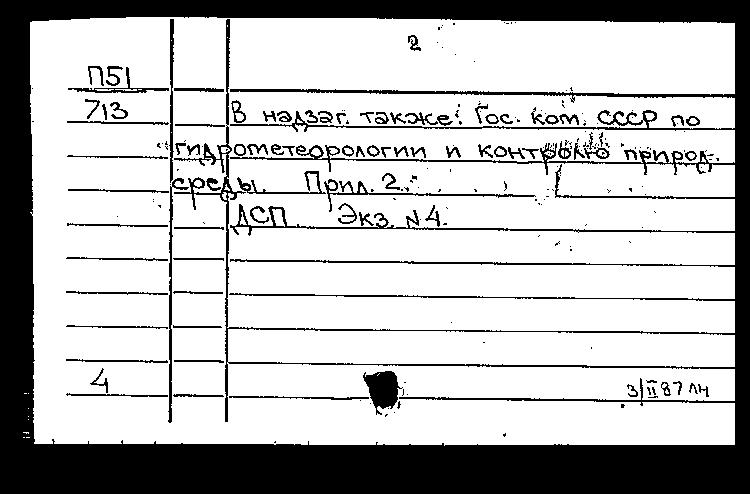 2
П51
713 В надзаг. также: Гос. ком. СССР по
гидрометеорологии и контролю природ.
среды. Прил. 2.
ДСП. Экз. N4.
4
3/II 87 ЛН